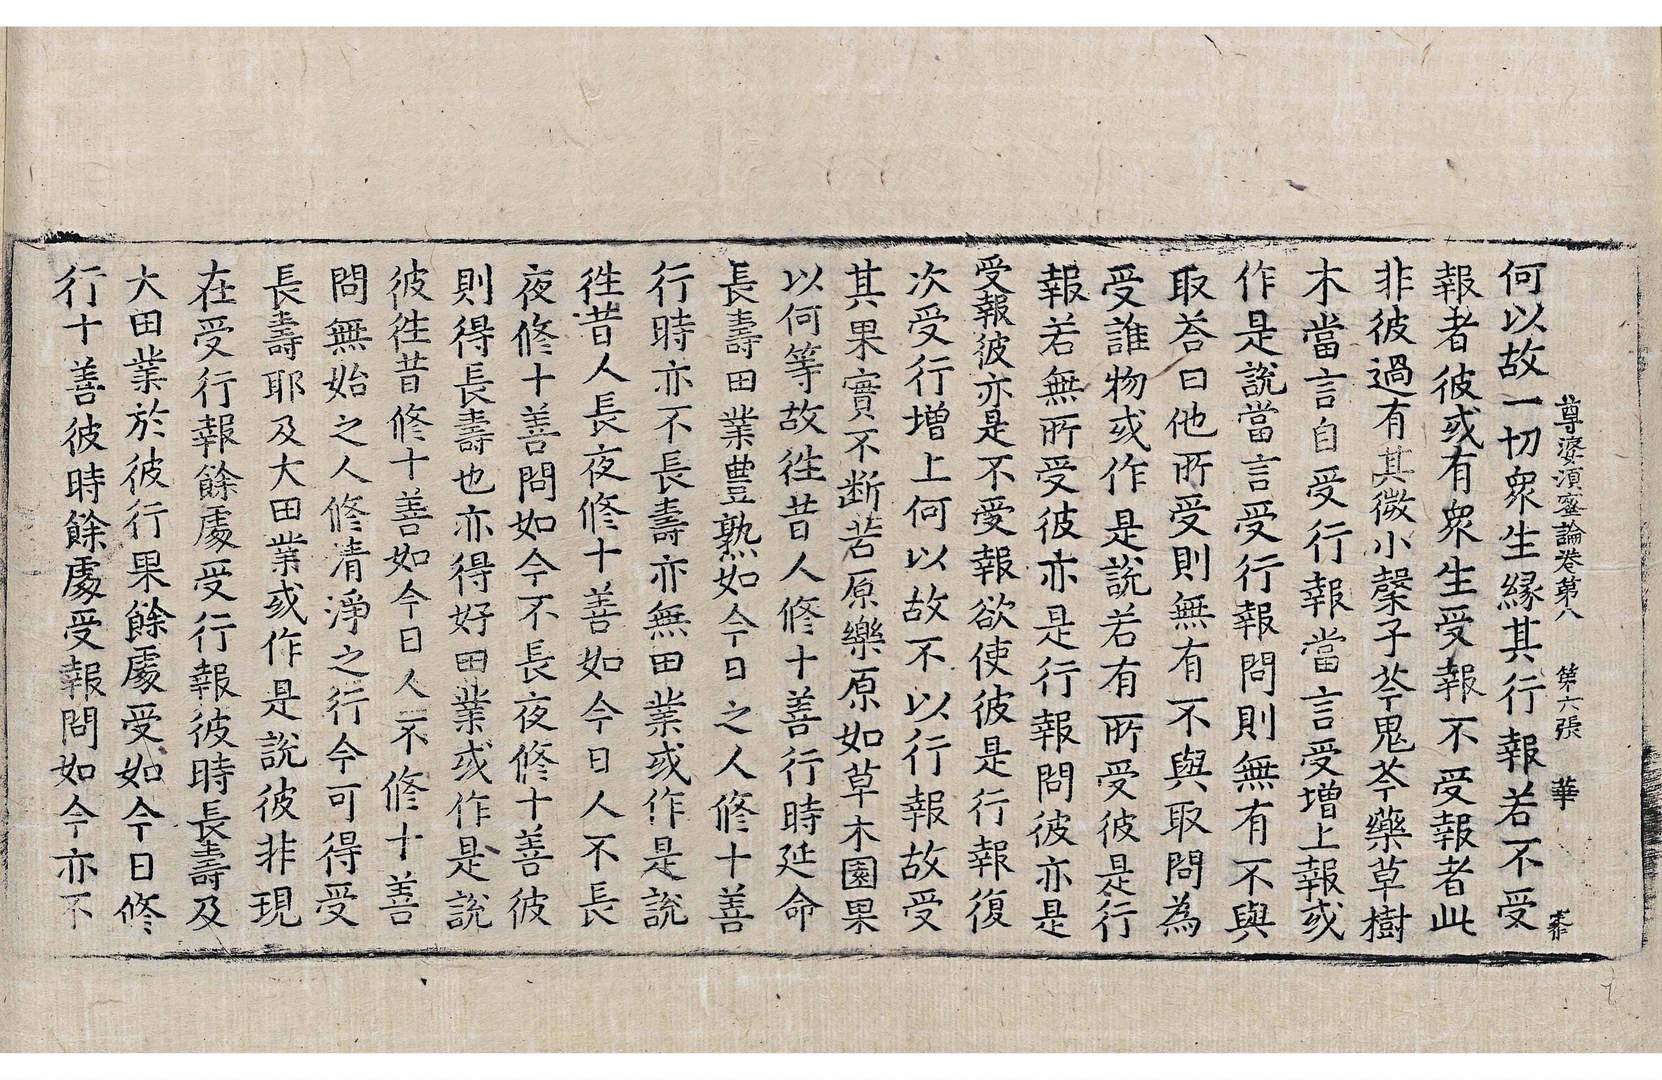 尊婆須蜜論卷第八 第六張 華
何以故一切衆生緣其行報若不受
報者彼或有衆生受報不受報者此
非彼過有其微小蘗子芩鬼芩藥草樹
木當言自受行報當言受增上報或
作是說當言受行報問則無有不與
取荅曰他所受則無有不與取問為
受誰物或作是說若有所受彼是行
報若無所受彼亦是行報問彼亦是
受報彼亦是不受報欲使彼是行報復
次受行增上何以故不以行報故受
其果實不断若原樂原如草木園果
以何等故徃昔人修十善行時延命
長壽田業豊熟如今日之人修十善
行時亦不長壽亦無田業或作是說
徃昔人長夜修十善如今日人不長
夜修十善問如今不長夜修十善彼
則得長壽也亦得好田業或作是說
彼徃昔修十善如今日人不修十善
問無始之人修清淨之行今可得受
長壽耶及大田業或作是說彼非現
在受行報餘處受行報彼時長壽及
大田業於彼行果餘處受如今日修
行十善彼時餘處受報問如今亦不